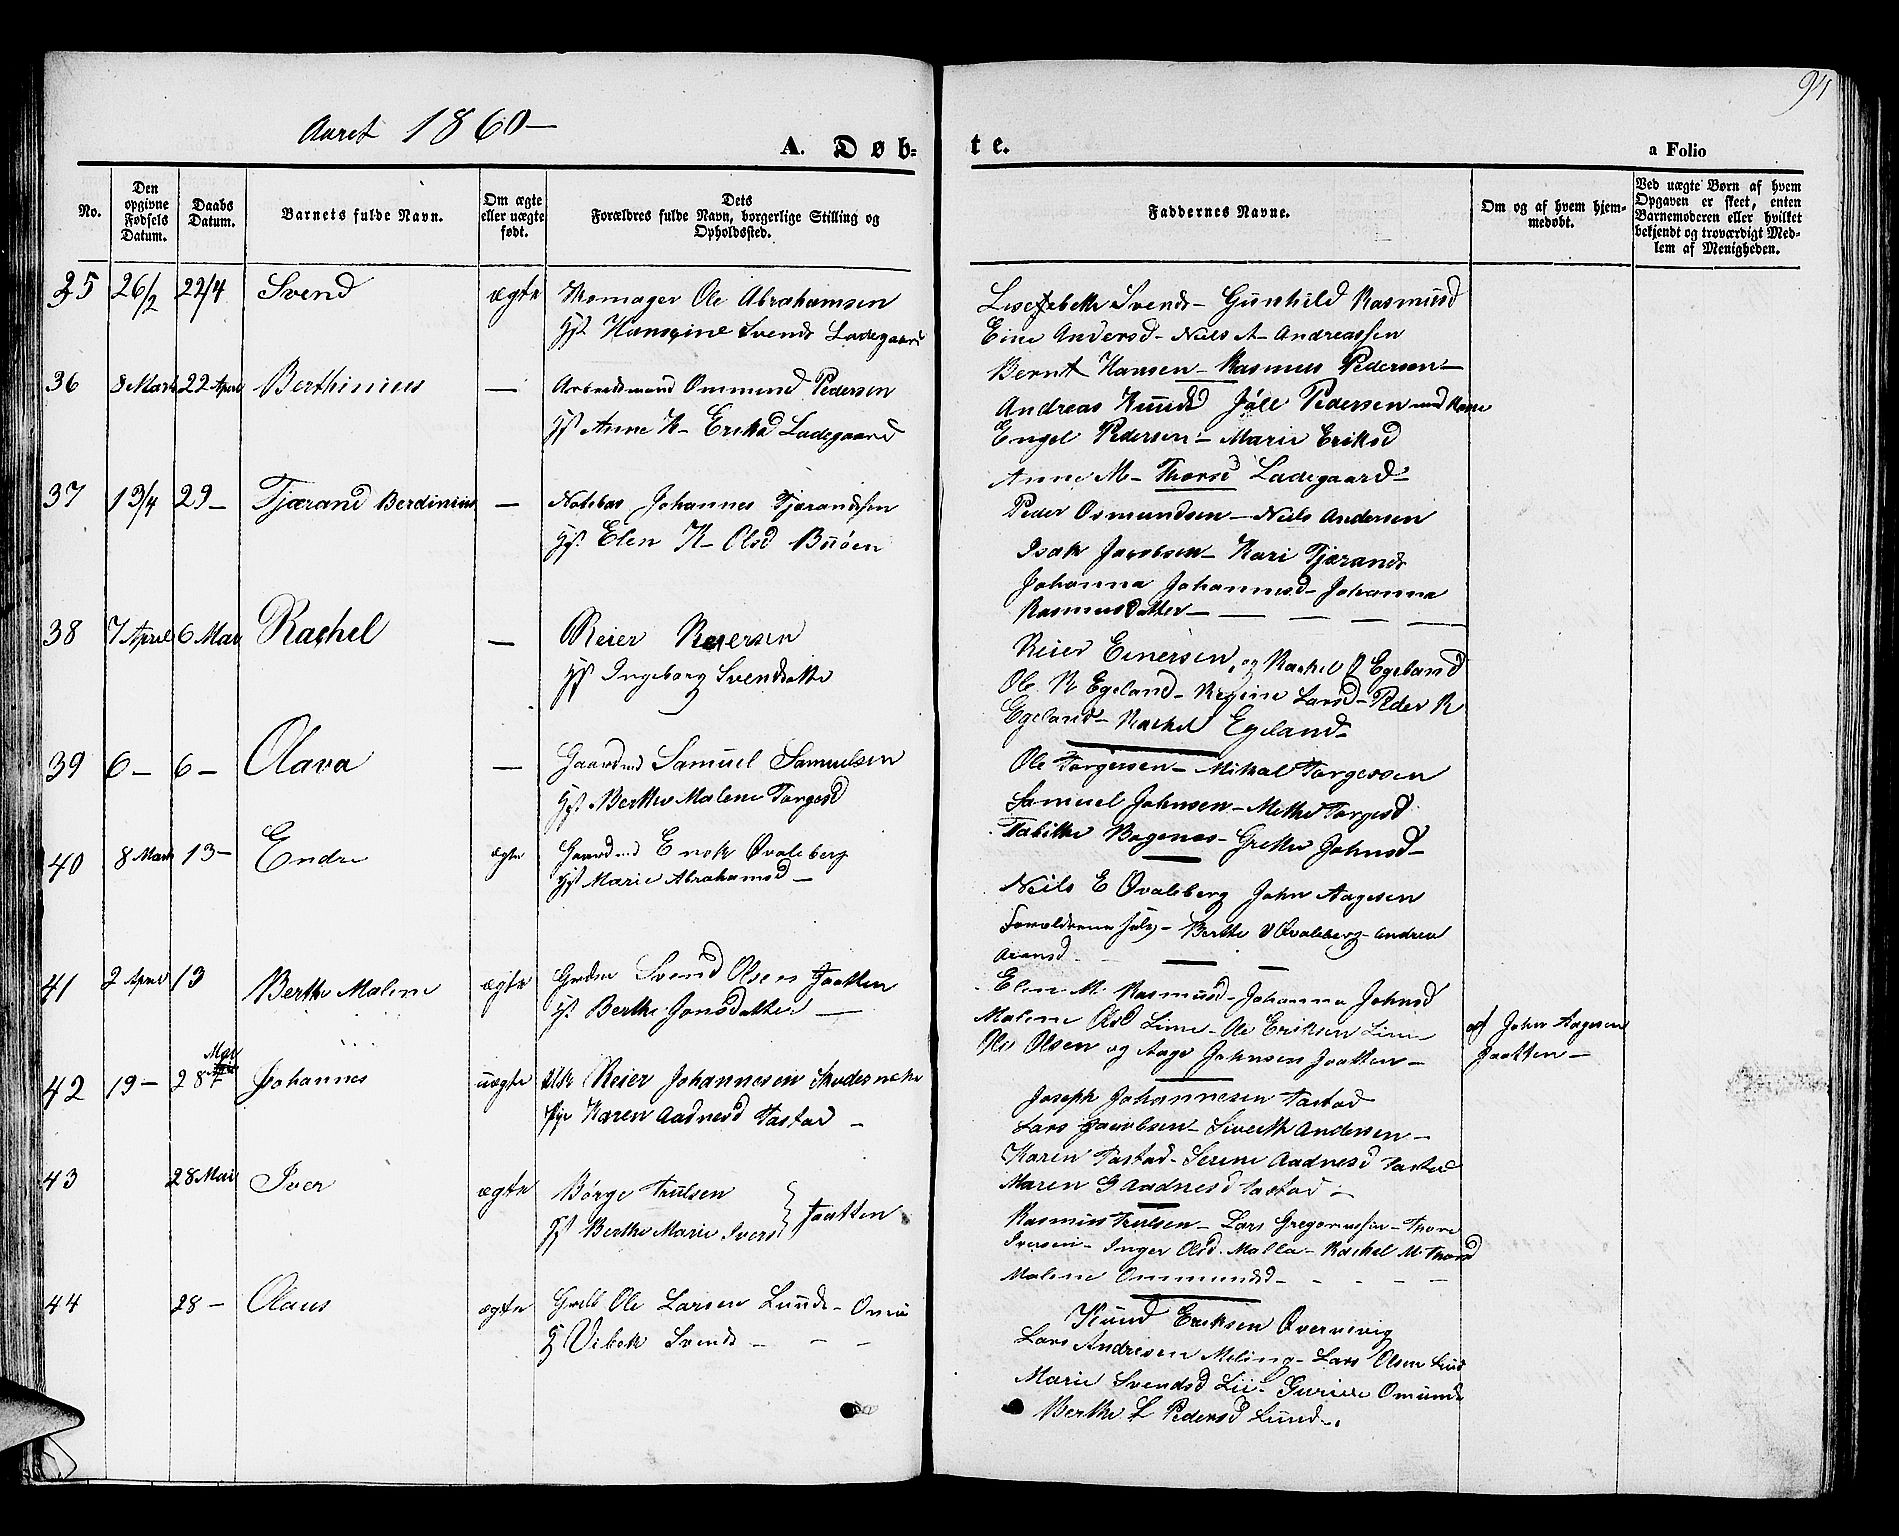 94
Aaret 1860-
A. Døb-
te.
a Folio
No.
Den opgivne Fødsels Datum.
Daabs Datum.
Barnets fulde Navn.
Om ægte eller uægte født.
Dets Forældres fulde Navn, borgerlige Stilling og Opholdssted.
Faddernes Navne.
Om og af hvem hjemmedøbt.
Ved uægte Børn af hvem Opgaven er skeet, enten Barnemoderen eller hvilket bekjendt og troværdigt Medlem af Menigheden.
35 26/2 22/4 Svend ægte Ole Abrahamsen
Hst Hansine Svends Ladegaard
Svends- Gunhild Rasmusd
Eine Andersd- Niels A- Andreassen
Bernt Hansen- Rasmus Pedersen-
36 8 Marts 22 April Berthinius — Arbeidsmand Ommund Pedersen
Hst Anne K- Eriksd Ladegaard
Andreas Knuds Pedersen
Engel Pedersen- Marie Eriksd
Anne M- Thorsd Ladegaard-
37 13/4 29- Tjærand Berdinius — Johannes Tjærandsen
Hst. Elen K- Olsd Buøen
Peder Osmundsen- Niels Andersen
Isak Jacobsen- Kari Tjærands
Johanna Johannesd- Johanna
Rasmusdatter-
38 7 April 6 Mai Rachel — Reier Reiersen
Hst Ingeborg Svendsdatter
Reier Einersen, og Rachel Egeland
Ole R Egeland- Regine Larsd- Peder R
Egeland- Rachel Egeland-
39 6- 6- Olava — Gaardmd Samuel Samuelsen
Hst. Berthe Malene Torgesd
Ole Torgersen- Mikal Torgersen
Samuel Johnsen- Methe Torgesd
Tabithe Bogenæs- Grethe Johnsd-
40 8 Marts 13- Endre ægte Gaardmd Enok Øvaleberg
Hst Marie Abrahamsd-
Neils E Øvaleberg John Aagesen
Forældrene selv- Berthe Øvaleberg- Andrea
41 2 April 13 Berthe Malene ægte Svend Olsen Jaatten
Hst. Berthe Jonsdatter-
Elen M. Rasmusd- Johanna Johnsd
Malene Olsd Lime- Ole Eriksen Lime-
Ole Olsen og Aage Johnsen Jaatten-
af John Aagesen
Jaatten-
42 19- 28 Mai Johannes uægte Reier Johannesen
Pige Karen Aadnesd Tastad-
Joseph Johannesen Tastad
Lars Jacobsen- Siverth Andersen-
Karen Tastad- Serine Aadnesd Tasted
Maren G Aadnesd Tastad-
43 28 Mai Iver ægte Børge Trulsen
Hst Berthe Marie Ivers } Jaatten
Rasmus Trulsen- Lars Gregoriussen- Thore
Iversen- Inger Olsd. Malla- Rachel M. Thorsd
Malene Ommundsd-
44 28- Olaus ægte Ole Larsen Lunde-
H Vibek Svends-
Knud Eriksen
Lars Andresen Meling- Lars Olsen Lund
Marie Svendsd Lii- Omunds
Berthe L Pedersd Lund-.